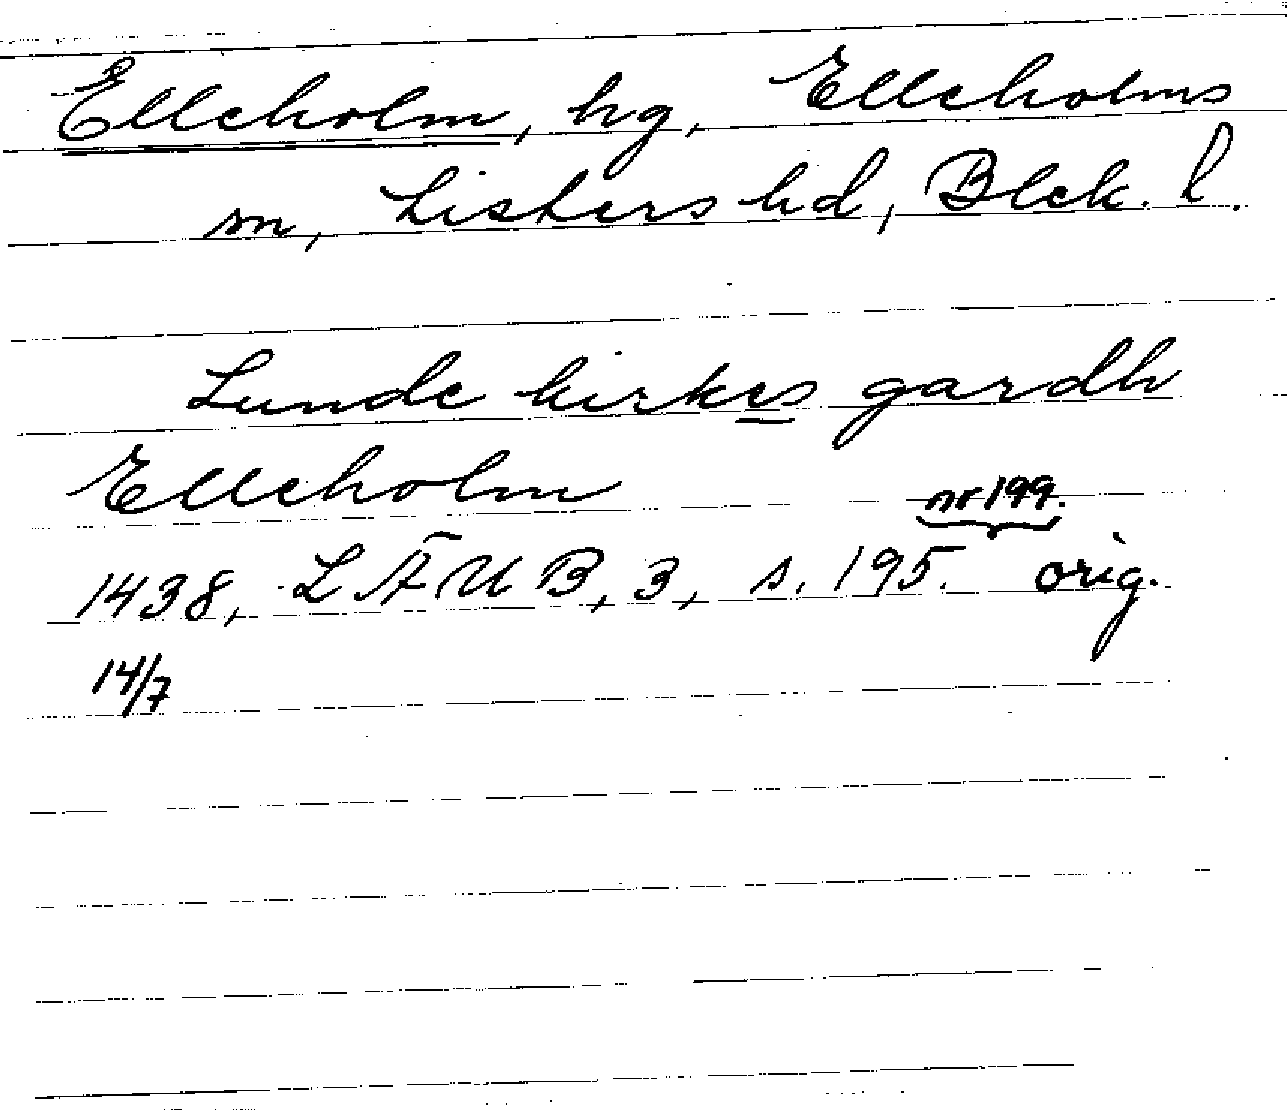 Elleholm, hg, Elleholms
sn, Listers hd, Blek. l.
Lunde kirkes gardh
Elleholm
nr 199.
1438, LÄUB, 3, s. 195. orig.
14/7